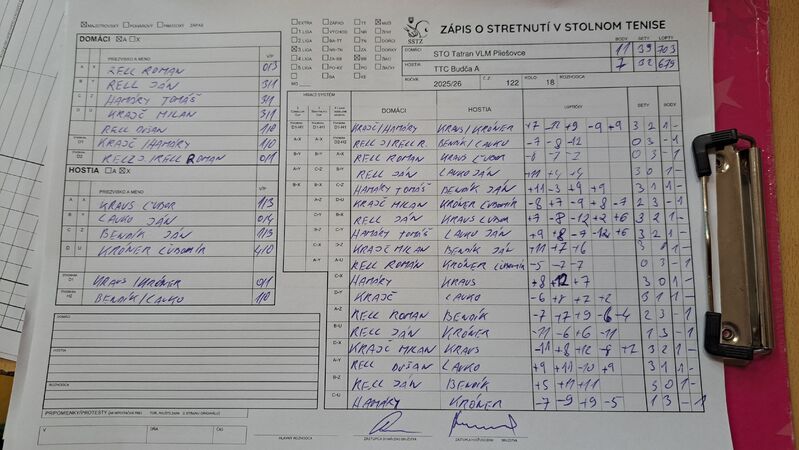 ZÁPIS O STRETNUTÍ V STOLNOM TENISE
SSTZ
MAJSTROVSKÝ POHÁROVÝ PRIATEĽSKÝ ZÁPAS
DOMÁCI A X
PRIEZVISKO A MENO V/P
RELL ROMAN 0/3
RELL JÁN 3/1
HAMÁRY TOMÁŠ 3/1
KRAJČ MILAN 3/1
RELL DUŠAN 1/0
KRAJČ/HAMÁRY 1/0
RELL J/RELL ROMAN 0/1
HOSTIA A X
PRIEZVISKO A MENO V/P
KRAUS ĽUBOR 1/3
LAUKO JÁN 0/4
BENDÍK JÁN 1/3
KRÖNER ĽUBOMÍR 4/0
KRAUS/KRÖNER 0/1
BENDÍK/LAUKO 1/0
DOMÁCI
HOSTIA
ROZHODCA
PRIPOMIENKY/PROTESTY
V DŇA ČAS
HLAVNÝ ROZHODCA
BODY SETY LOPTY
DOMÁCI STO Tatran VLM Pliešovce 11 39 703
HOSTIA TTC Budča A 7 32 679
ROČNÍK 2025/26 Č.Z. 122 KOLO 18 ROZHODCA
HRACÍ SYSTÉM
DOMÁCI HOSTIA LOPTIČKY SETY BODY
KRAJČ/HAMÁRY KRAUS/KRÖNER +7 -11 +9 -9 +9 3 2 1 -
RELL J/RELL R. BENDÍK/LAUKO -7 -8 -12 0 3 - 1
RELL ROMAN KRAUS ĽUBOR -8 -7 -2 0 3 - 1
RELL JÁN LAUKO JÁN +11 +4 +4 3 0 1 -
HAMÁRY TOMÁŠ BENDÍK JÁN +11 -3 +9 +9 3 1 1 -
KRAJČ MILAN KRÖNER ĽUBOMÍR -8 +7 -9 +8 -7 2 3 - 1
RELL JÁN KRAUS ĽUBOR +7 -8 -12 +2 +6 3 2 1 -
HAMÁRY TOMÁŠ LAUKO JÁN +9 +8 -7 -12 +6 3 2 1 -
KRAJČ MILAN BENDÍK JÁN +11 +7 +6 3 0 1 -
RELL ROMAN KRÖNER ĽUBOMÍR -5 -7 -7 0 3 - 1
HAMÁRY KRAUS +8 +12 +7 3 0 1 -
KRAJČ LAUKO -6 +8 +2 +2 3 1 1 -
RELL ROMAN BENDÍK -7 +7 +9 -6 -4 2 3 - 1
RELL JÁN KRÖNER -11 -6 +6 -11 1 3 - 1
KRAJČ MILAN KRAUS -11 +8 +12 -8 +7 3 2 1 -
RELL DUŠAN LAUKO +9 +11 -10 +9 3 1 1 -
RELL JÁN BENDÍK +5 +11 +11 3 0 1 -
HAMÁRY KRÖNER -7 -9 +9 -5 1 3 - 1